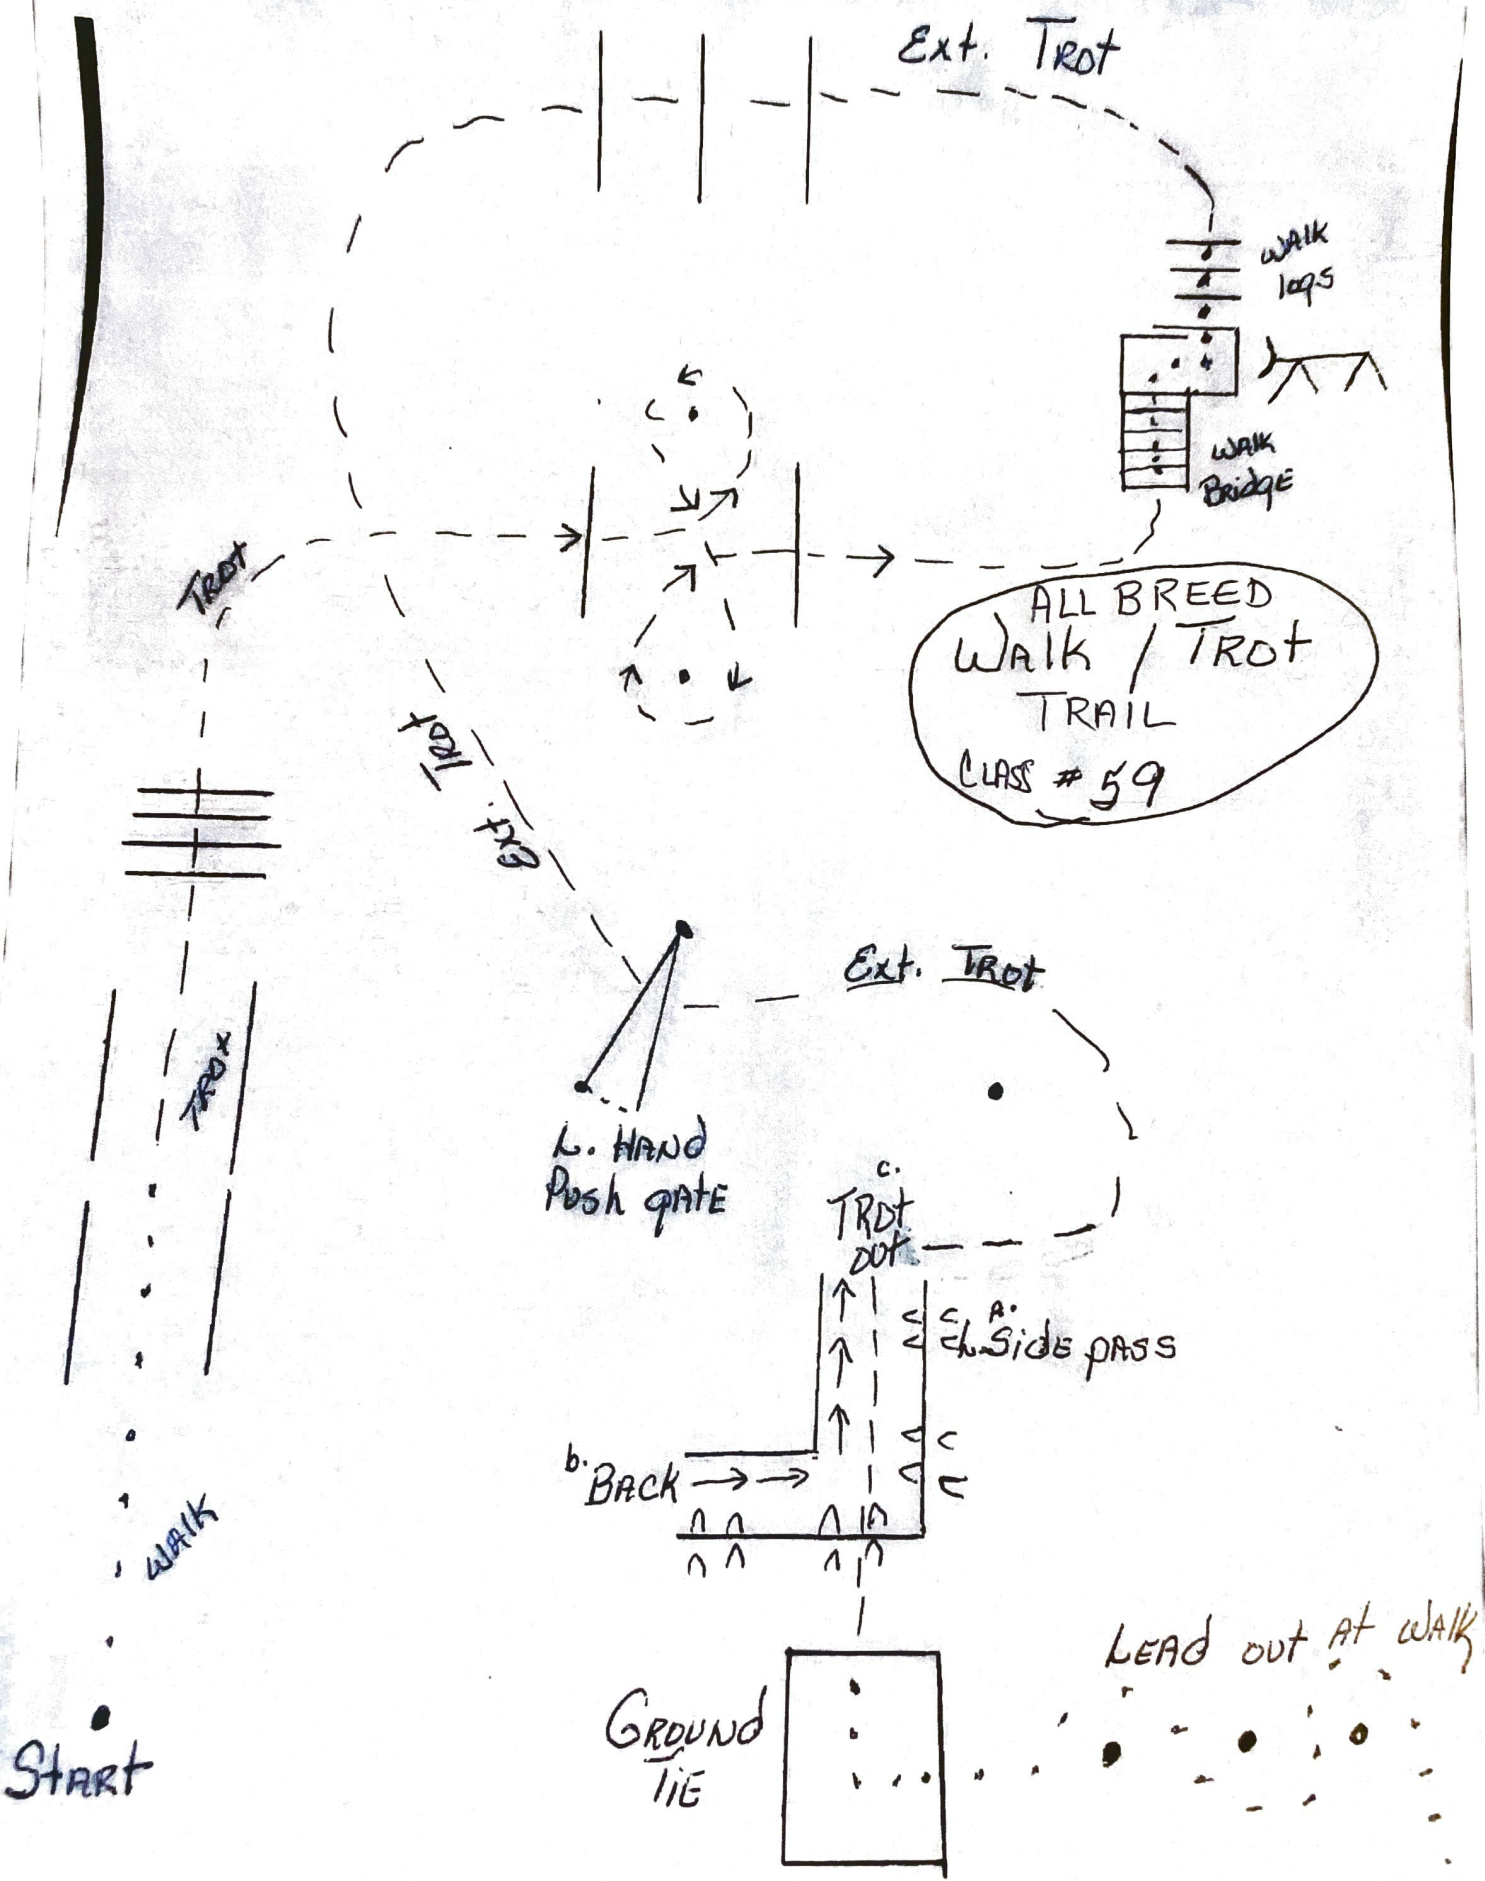 Ext. TROT
WALK
logs
WALK
BRidgE
TROT
ALL BREED
WALK / TROT
TRAIL
CLASS # 59
Ext. TROT
Ext. TROT
TROT
L. HAND
Push gATE
c.
TROT
out
A.
L. SidE pASS
b. BACK
WALK
START
GROUND
TiE
LEAd out At WALK